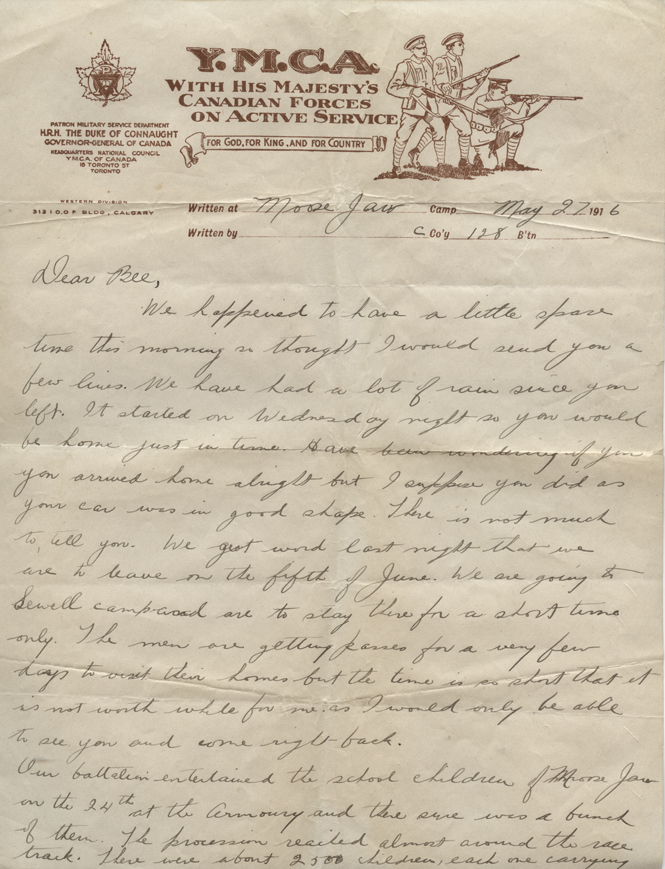 Y.M.C.A.
WITH HIS MAJESTY'S
CANADIAN FORCES
ON ACTIVE SERVICE
FOR GOD, FOR KING, AND FOR COUNTRY
PATRON MILITARY SERVICE DEPARTMENT
H.R.H. THE DUKE OF CONNAUGHT
GOVERNOR-GENERAL OF CANADA
HEADQUARTERS NATIONAL COUNCIL
Y.M.C.A. OF CANADA
15 TORONTO ST
TORONTO
WESTERN DIVISION
313 I.O.O.F. BLDG., CALGARY
Written at Moose Jaw Camp May 27 1916
Written by C Co'y 128 B'tn
Dear Bee,
We happened to have a little spare
time this morning so thought I would send you a
few lines. We have had a lot of rain since you
left. It started on Wednesday night so you would
be home just in time. Have been wondering if you
you arrived home alright but I suppose you did as
your car was in good shape. There is not much
to tell you. We got word last night that we
are to leave on the fifth of June. We are going to
Sewell camp and are to stay there for a short time
only. The men are getting passes for a very few
days to visit their homes but the time is so short that it
is not worth while for me as I would only be able
to see you and come right back.
Our battalion entertained the school children of Moose Jaw
on the 24th at the Armoury and there sure was a bunch
of them. The procession reached almost around the race
track. There were about 2500 children, each one carrying